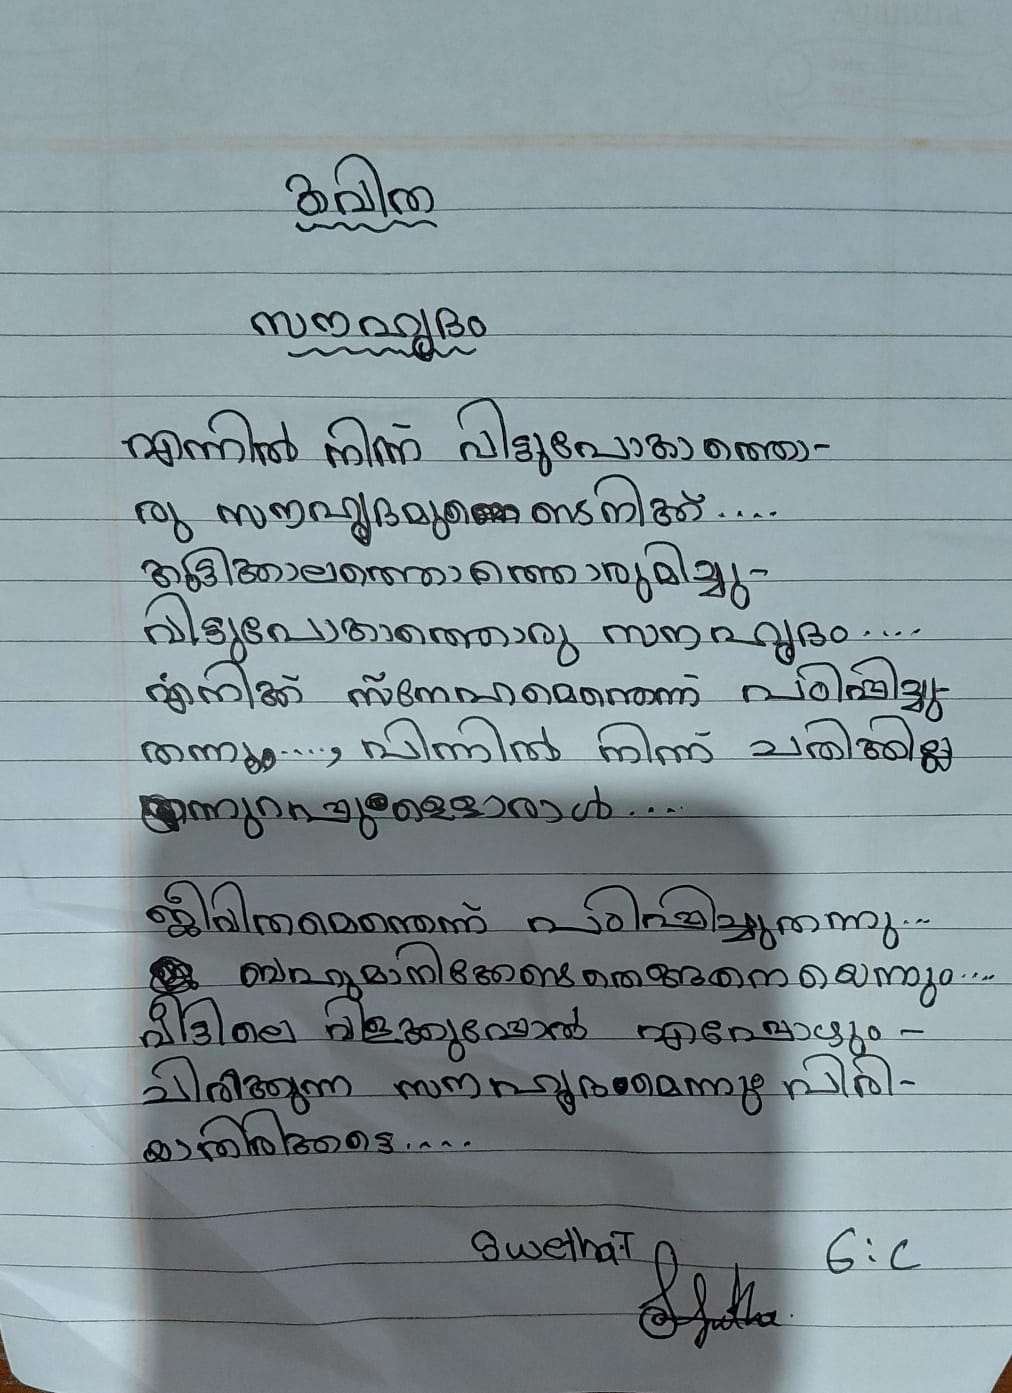 കവിത
സൗഹൃദം
എന്നിൽ നിന്ന് വിട്ടുപോകാത്തൊ-
രു സൗഹൃദമുണ്ടെനിക്ക്....
കുട്ടിക്കാലത്തൊത്തൊരുമിച്ചു-
വിട്ടുപോകാത്തൊരു സൗഹൃദം....
എനിക്ക് സ്നേഹമെന്തെന്ന് പഠിപ്പിച്ചു
തന്നും...., പിന്നിൽ നിന്ന് ചതിക്കില്ല
ന്നുറപ്പുള്ളൊരാൾ....
ജീവിതമെന്തെന്ന് പഠിപ്പിച്ചുതന്നു...
ബഹുമാനിക്കേണ്ടതെങ്ങനെയെന്നും....
വീട്ടിലെ വിളക്കുപോൽ എപ്പോഴും -
ചിരിക്കുന്ന സൗഹൃദമെന്നും പിരി-
യാതിരിക്കട്ടെ....
Swetha.T 6:C